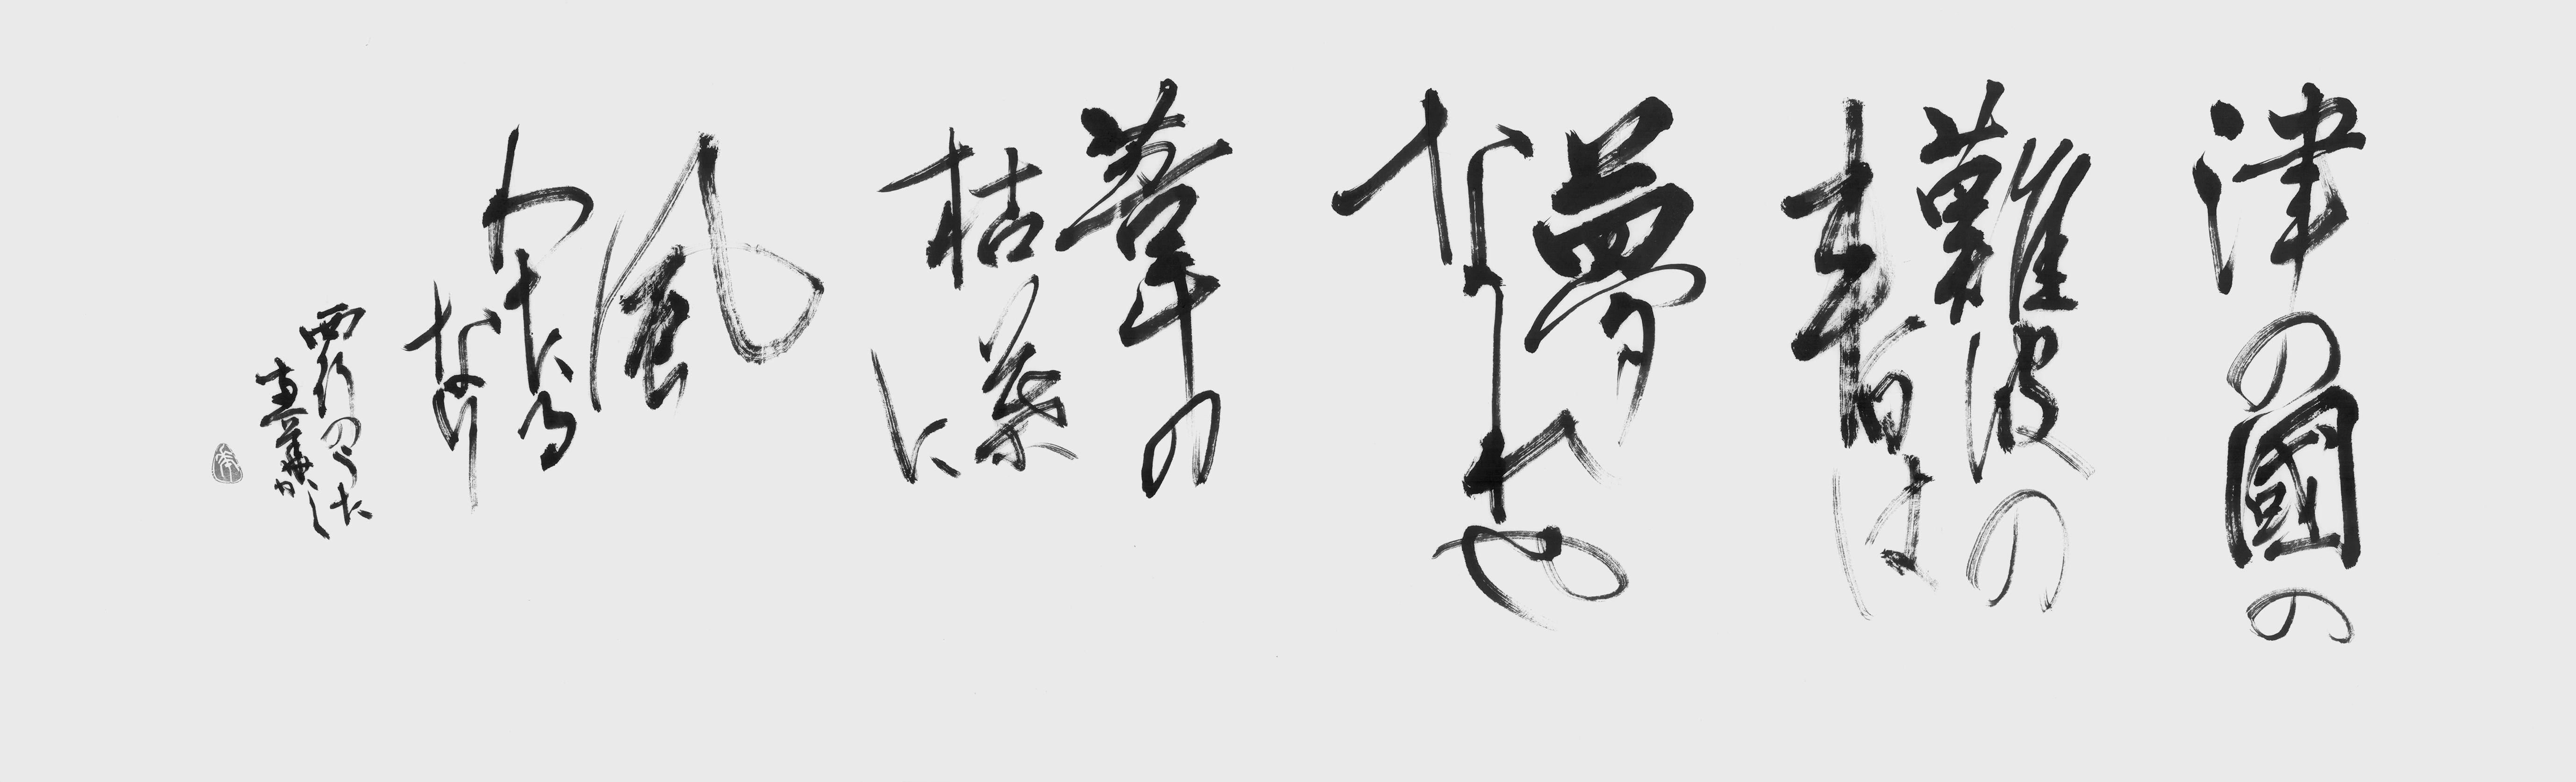 津の國の
難波の
春は
夢
なれや
葦の
枯葉に
風
わたる
なり
西行のうた